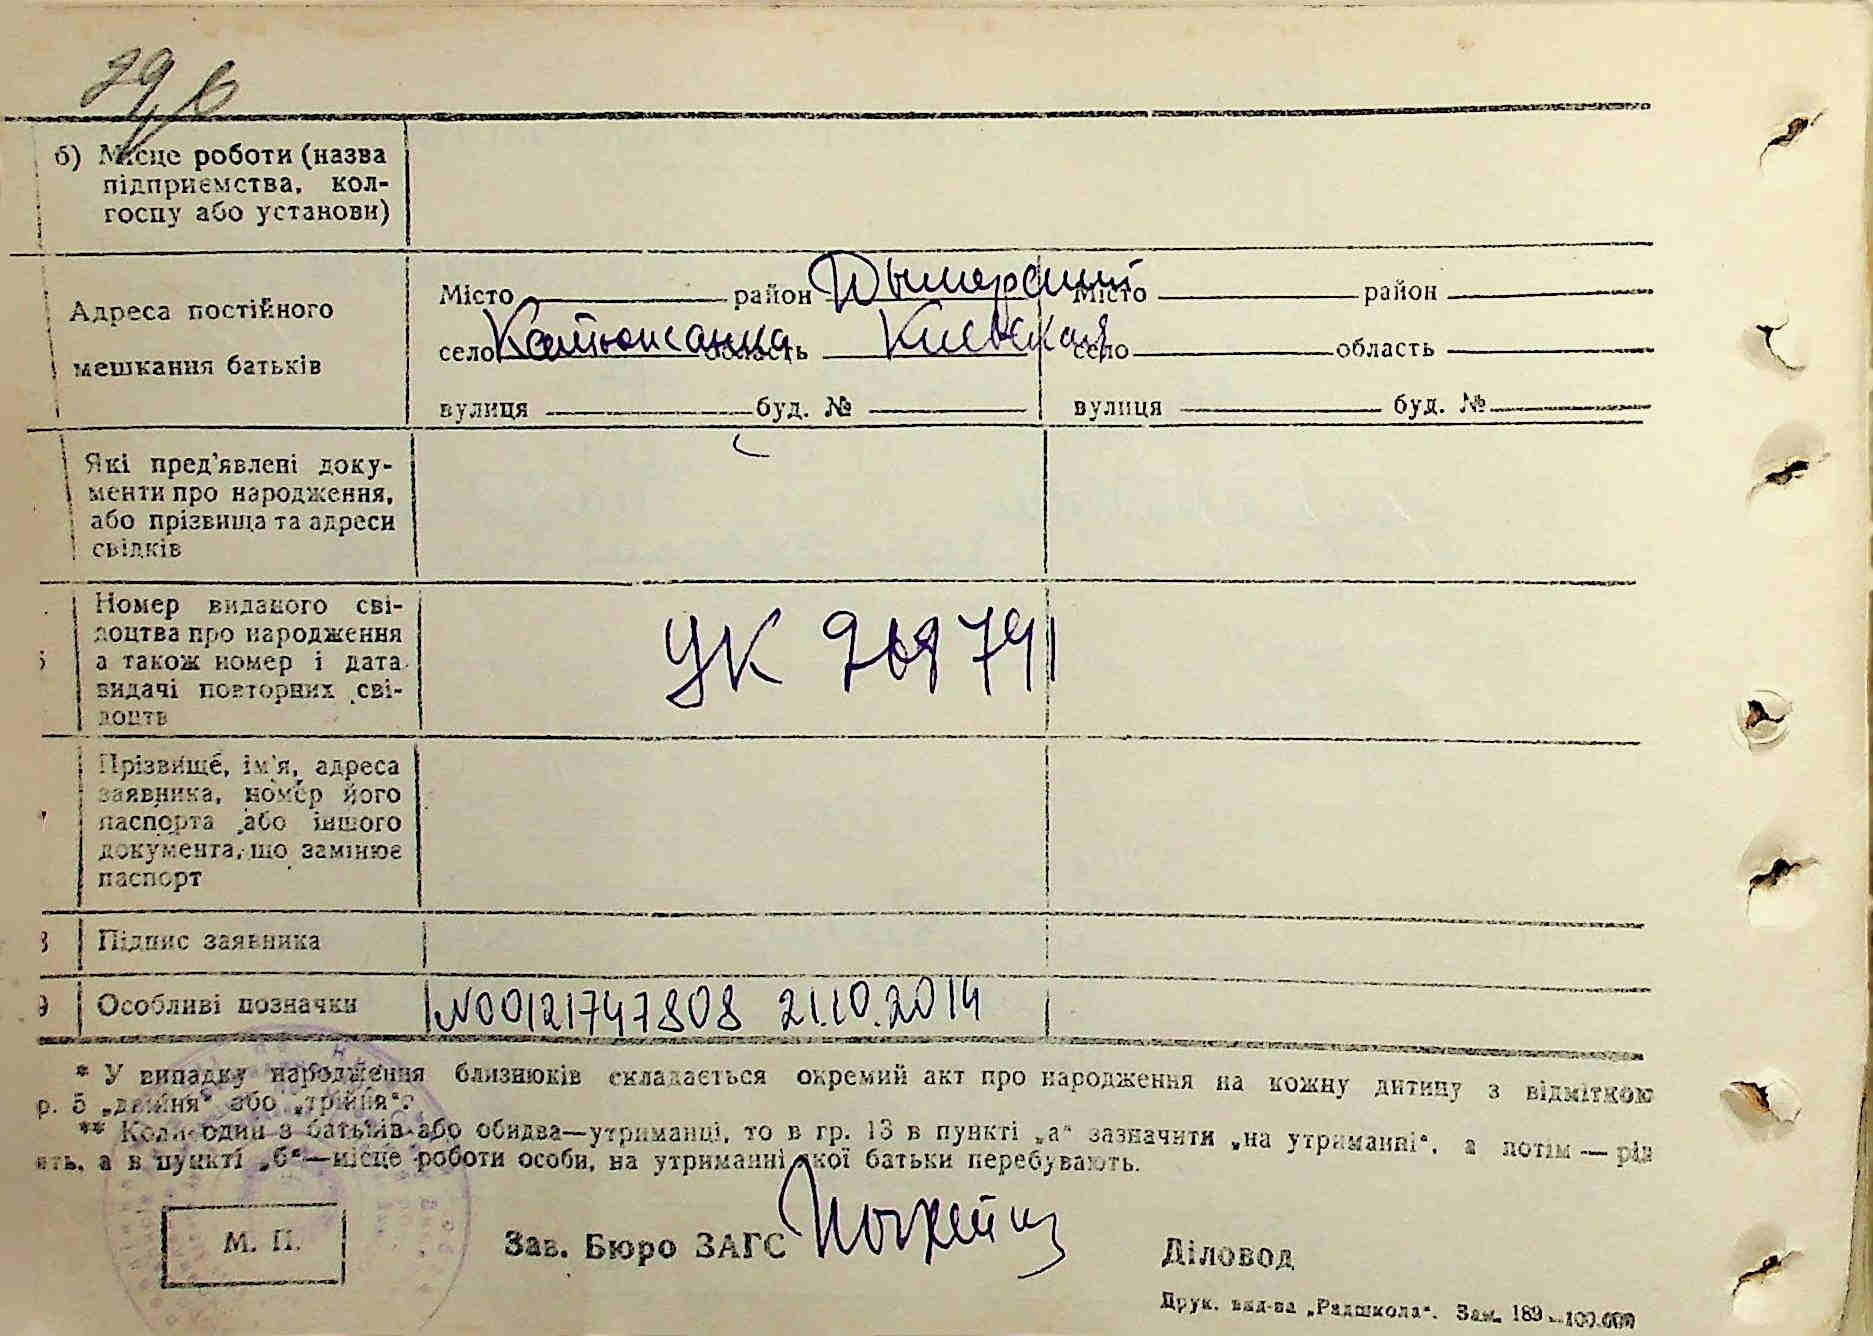 29
б) Місце роботи (назва
підприємства, кол-
госпу або установи)
Адреса постійного
мешкання батьків
Місто район Дымерский Місто район
село Катюжанка область Киевская село область
вулиця буд. № вулиця буд. №
Які пред'явлені доку-
менти про народження,
або прізвища та адреси
свідків
Номер виданого сві-
доцтва про народження
а також номер і дата
видачі повторних сві-
доцтв
УК 969791
7
Прізвище, ім'я, адреса
заявника, номер його
паспорта або іншого
документа, що замінює
паспорт
8 Підпис заявника
9 Особливі позначки N00121747808 21.10.2014
* У випадку народження близнюків складається окремий акт про народження на кожну дитину з відміткою
р. 5 „двійня“ або „трійня“.
** Коли один з батьків або обидва—утриманці, то в гр. 13 в пункті „а“ зазначити „на утриманні“, а потім — рід
ять, а в пункті „б“—місце роботи особи, на утриманні якої батьки перебувають.
М. П.
Зав. Бюро ЗАГС
Діловод
Друк. вид-ва „Радшкола“. Зам. 189—100.000